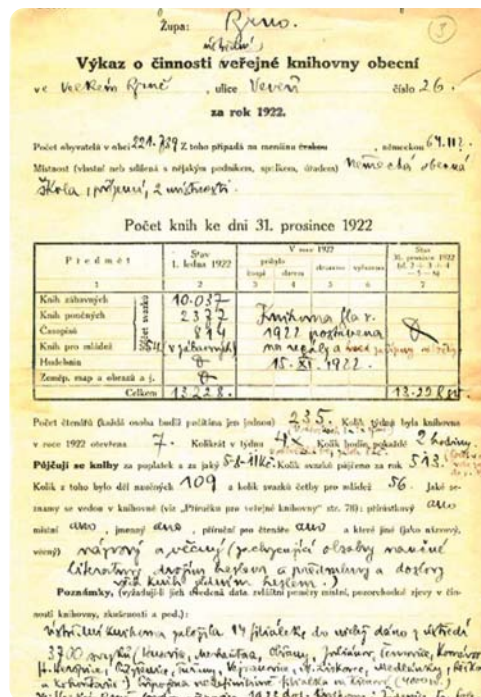 Župa: Brno. 3
ústřední
Výkaz o činnosti veřejné knihovny obecní
ve Velkém Brně , ulice Veveří číslo 26.
za rok 1922.
Počet obyvatelů v obci 221.789 Z toho připadá na menšinu českou , německou
Místnost (vlastní neb sdílená s nějakým podnikem, spolkem, úřadem) Německá obecná
škola, přízemí, 2 místnosti.
Počet knih ke dni 31. prosince 1922
Předmět Stav 1. ledna 1922 V roce 1922 Stav 31. prosince 1922
přibylo ztraceno vyřazeno
koupí darem
1 2 3 4 5 6 7
Knih zábavných 10.037
Knih poučných 2377 Knihovna
Časopisů 894 1922 postavena
Knih pro mládež (v zábavných) na regály a
Hudebnin 15. XI. 1922.
Zeměp. map a obrazů a j.
Celkem 13.228.
Počet čtenářů (každá osoba budiž počítána jen jednou) 235. Kolik týdnů byla knihovna
v roce 1922 otevřena 7. Kolikrát v týdnu 4x Kolik hodin pokaždé 2 hodiny.
Půjčují se knihy za poplatek a za jaký Kolik svazků půjčeno za rok 513.
Kolik z toho bylo děl naučných 109 a kolik svazků četby pro mládež 56. Jaké se-
znamy se vedou v knihovně (viz „Příručku pro veřejné knihovny" str. 78): přírůstkový ano
místní ano, jmenný ano, příruční pro čtenáře ano a které jiné (jako názvový,
věcný) názvový a věcný (zachycující obsahy naučné
literatury dvojím heslem a předmluvy a doslovy
všech knih jedním heslem.)
Poznámky, (vyžadují-li jich uvedená data, zvláštní poměry místní, pozoruhodné zjevy v čin-
nosti knihovny, zkušenosti a pod.):
Ústřední knihovna založila 14 filiálek do nichž dáno z ústředí
3700 svazků (Husovice, Obřany, Juliánov, Černovice, Komárov
H. Heršpice, Tuřany,